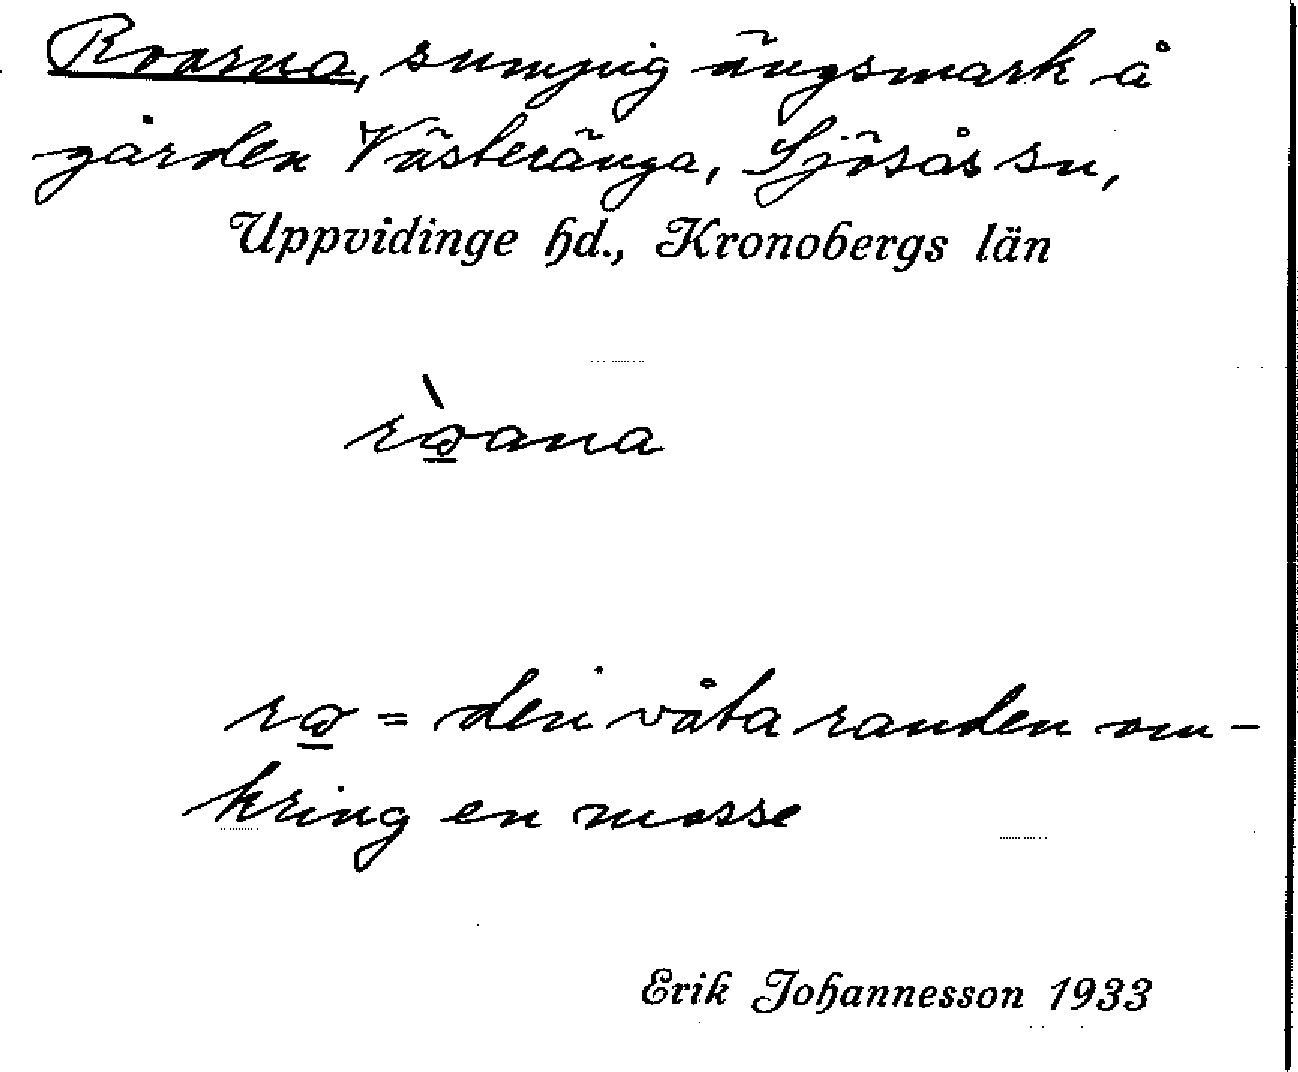 Roarna, sumpig ängsmark å
gården Västeränga, Sjösås sn,
Uppvidinge hd., Kronobergs län
rò̱ana
ro̱ = den våta randen om-
kring en mosse
Erik Johannesson 1933